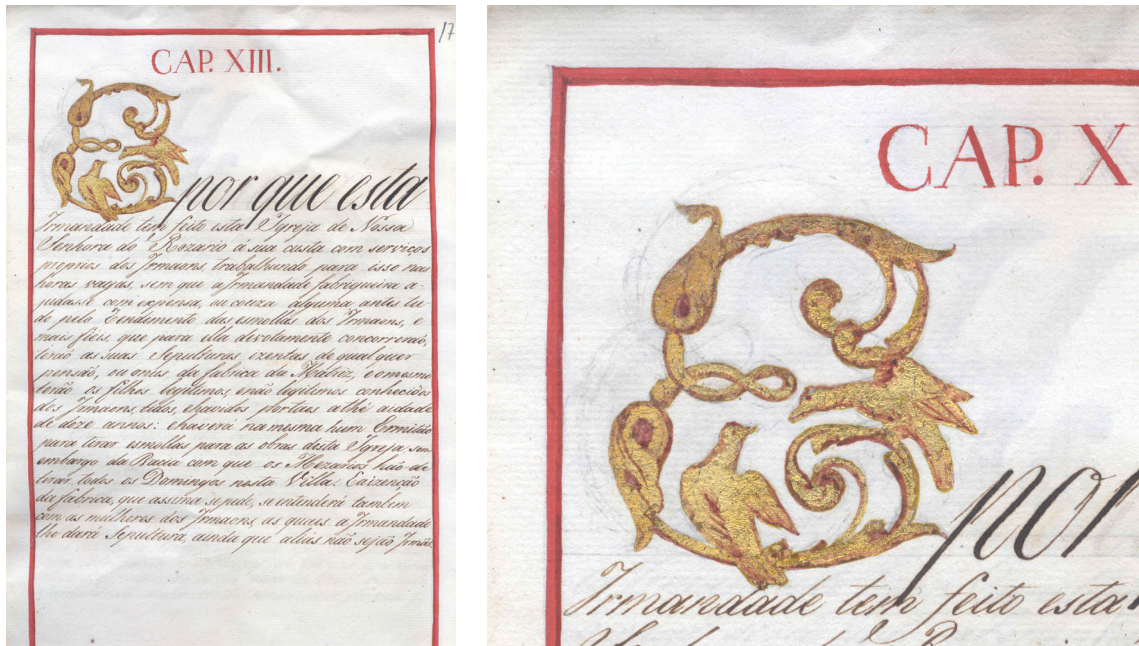 17
CAP. XIII.
E por que esta
Irmandade tem feito esta Igreja de Nossa
Senhora do Rozario á sua custa com serviços
proprios dos Irmaons, trabalhando para isso nas
horas vagas, sem que a Irmandade fabriqueira a-
judasse com expensa, ou couza alguma, antes tu-
do pelo rendimento das esmollas dos Irmaons, e
mais fieis, que para ella devotamente concorrerão,
terão as suas Sepulturas izentas de qualquer
pensão, ou onus da fabrica da Matriz, e o mesmo
terão os filhos legitimos, e não legitimos conhecidos
dos Irmaons, tidos, e havidos por taes athé a idade
de doze annos: e haverá na mesma hum Ermitão
para tirar esmollas para as obras desta Igreja sem
embargo da Bacia com que os Mezarios hão de
tirar todos os Domingos nesta Villa: E a izenção
da fabrica, que assima se pede, se entenderá tambem
com as mulheres dos Irmaons as quaes a Irmandade
lhe dará Sepultura, ainda que alias não sejão Irmãs.
CAP. X
E por
Irmandade tem feito esta